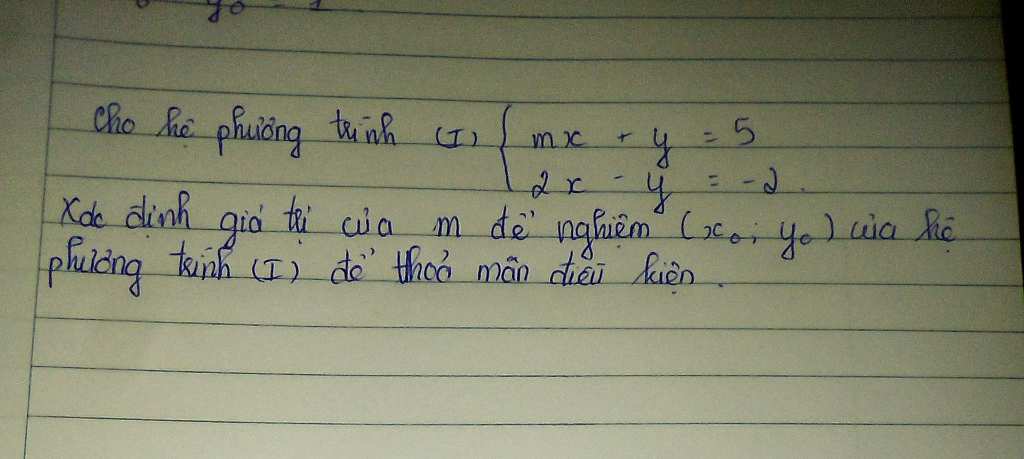 y₀ = 1
Cho hệ phương trình (I) { mx + y = 5
2x - y = -2.
Xác định giá trị của m để nghiệm (x₀; y₀) của hệ
phương trình (I) để thoả mãn điều kiện.